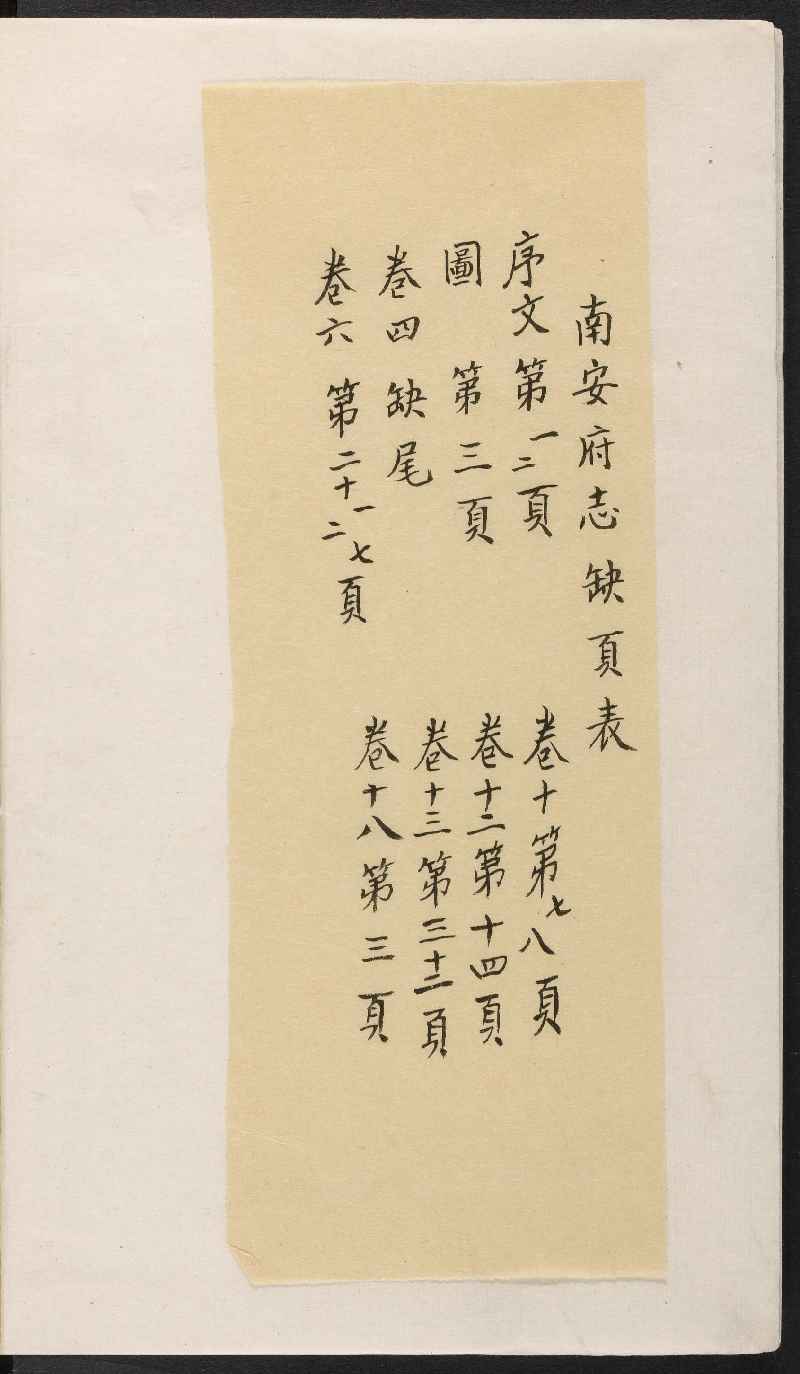 南安府志缺頁表
序文第一二頁
圖 第三頁
卷四缺尾
卷六 第二十一二七頁
卷十第七八頁
卷十二第十四頁
卷十三第三十二頁
卷十八第三頁